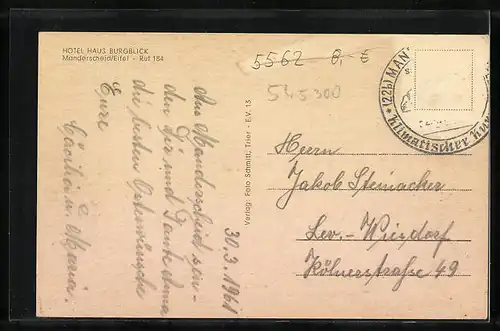 HOTEL HAUS BURGBLICK
Manderscheid/Eifel - Ruf 184
5562 8,- €
545300
(22b) MAN
Klimatischer Kur
Verlag: Foto Schmitt, Trier - E.V. 15
30.3.1961
Aus Manderscheid sen-
den Dir und Tante Anna
die besten Osterwünsche
Eure
Cäcilia u. Maria.
Herrn
Jakob Steinacker
Lev.-Wiesdorf
Kölnerstraße 49